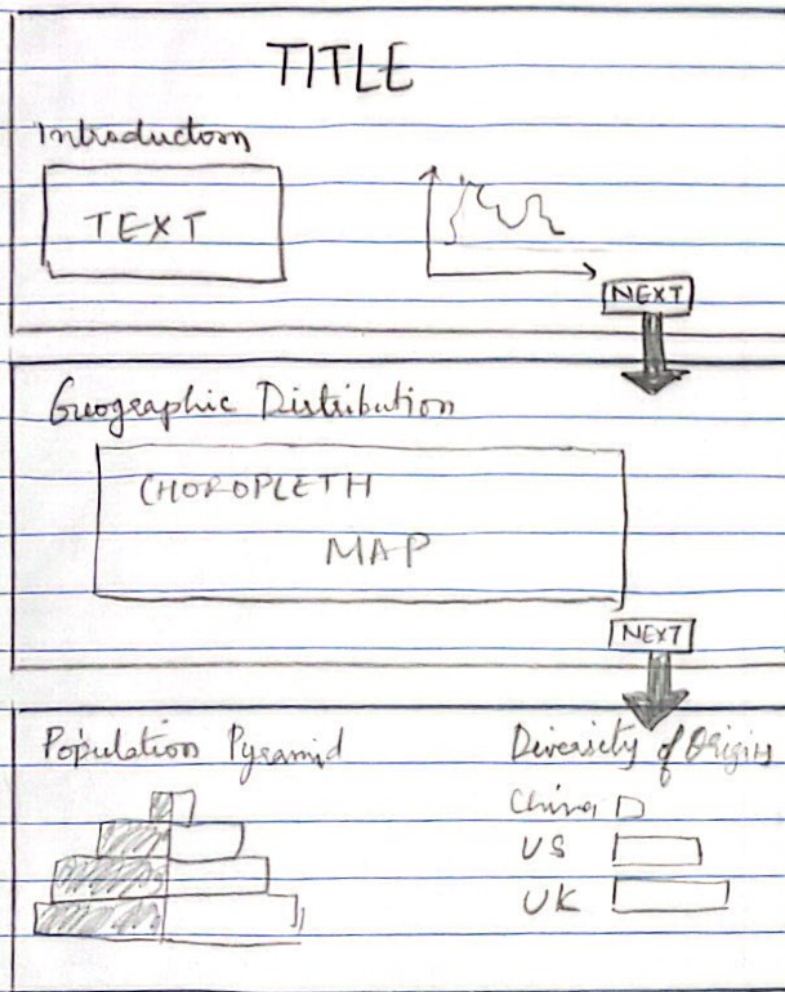 TITLE
Introduction
TEXT
NEXT
Geographic Distribution
CHOROPLETH
MAP
NEXT
Population Pyramid
Diversity of Origins
China
US
UK